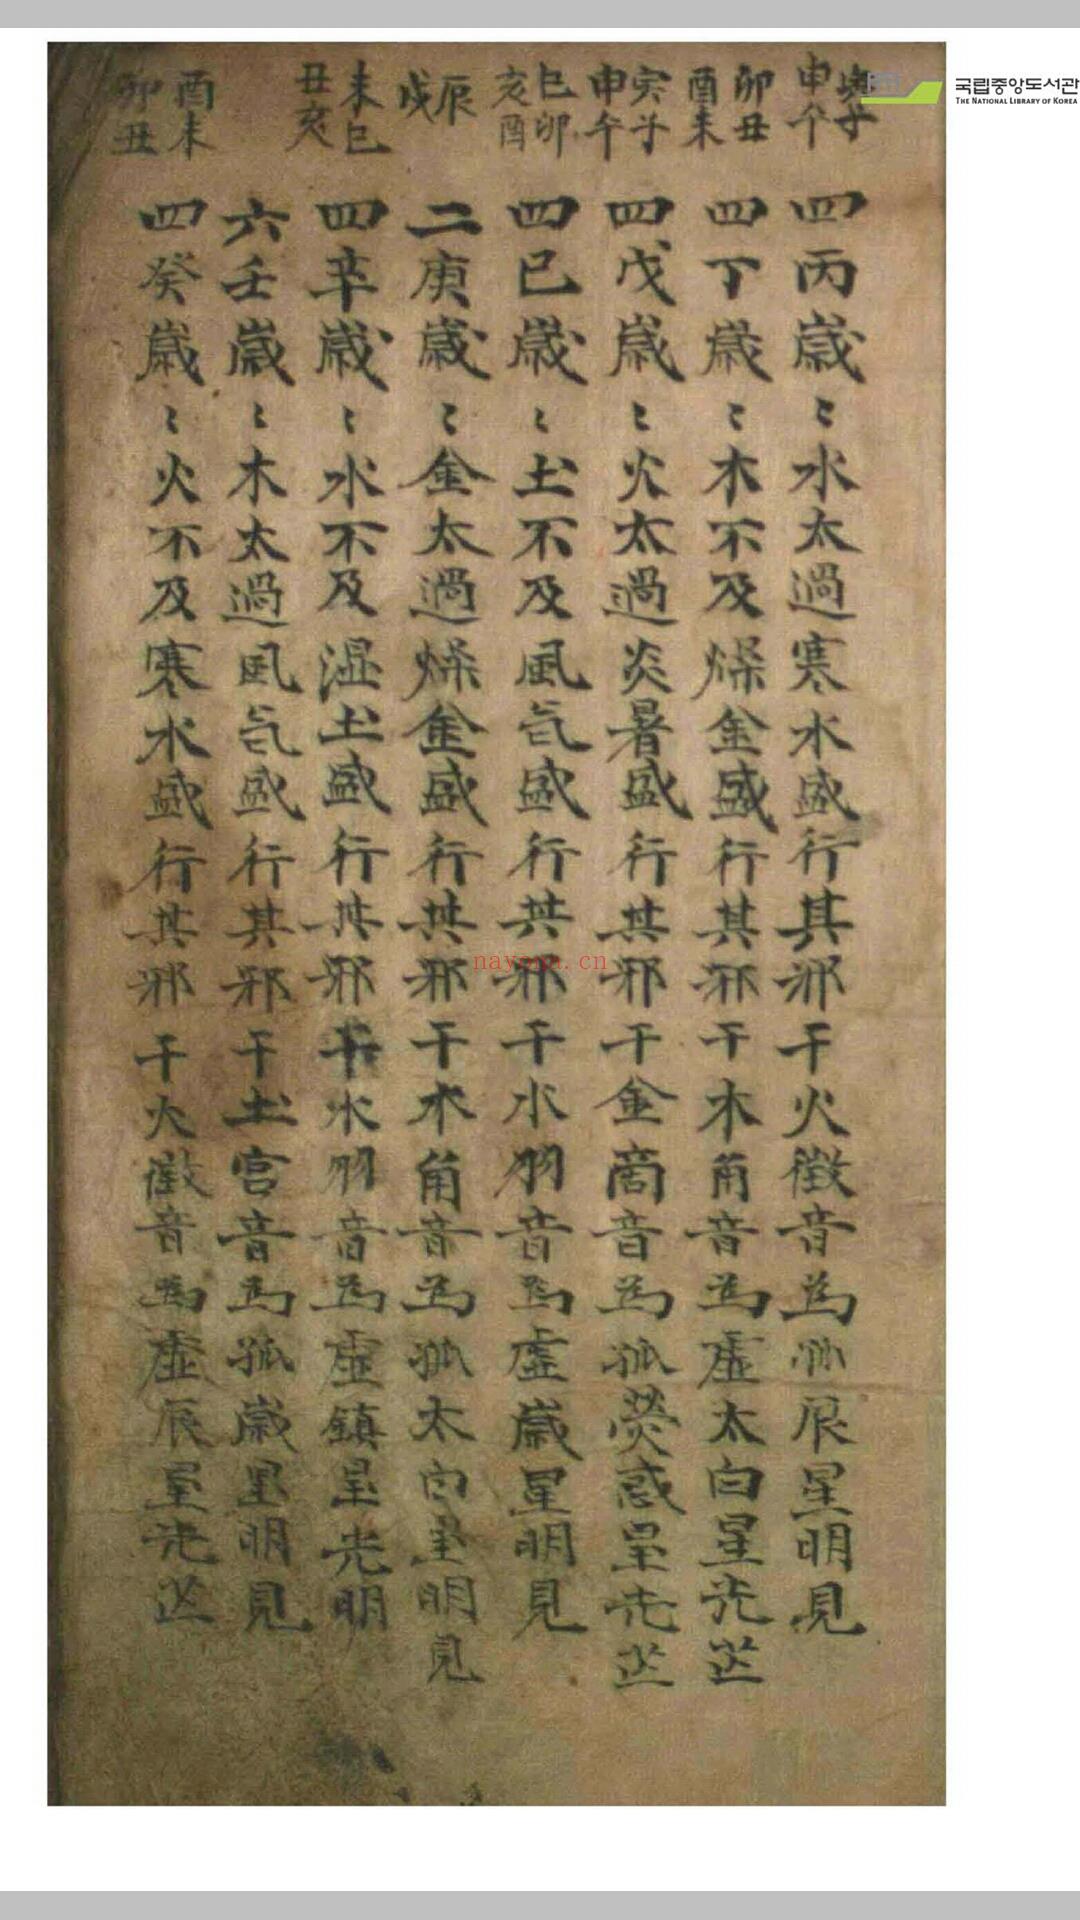 寅子
申午
四丙歲〻水太過寒水盛行其邪干火徵音為孤辰星明見
卯丑
酉未
四丁歲〻木不及燥金盛行其邪干木角音為虛太白星光芒
寅子
申午
四戊歲〻火太過炎暑盛行其邪干金商音為孤熒惑星光芒
巳卯
亥酉
四己歲〻土不及風气盛行其邪干水羽音為虛歲星明見
辰
戌
二庚歲〻金太過燥金盛行其邪干木角音為孤太白星明見
未巳
丑亥
四辛歲〻水不及湿土盛行其邪干水羽音為虛鎮星光明
六壬歲〻木太過風气盛行其邪干土宮音為孤歲星明見
酉未
卯丑
四癸歲〻火不及寒水盛行其邪干火徵音為虛辰星光芒
국립중앙도서관
THE NATIONAL LIBRARY OF KOREA
nayona.cn